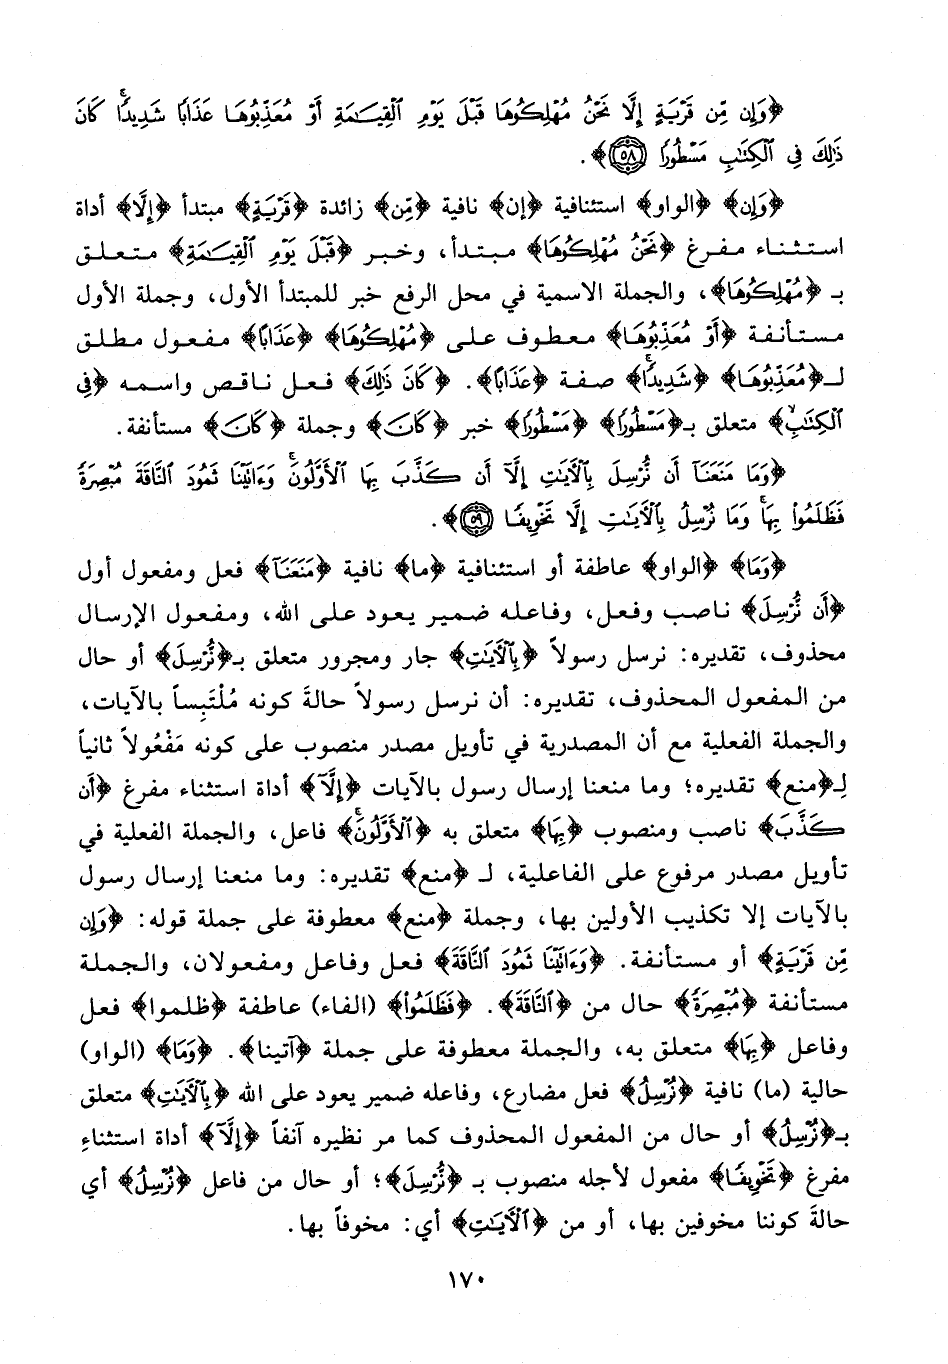 ﴿وَإِن مِّن قَرْيَةٍ إِلَّا نَحْنُ مُهْلِكُوهَا قَبْلَ يَوْمِ ٱلْقِيَـٰمَةِ أَوْ مُعَذِّبُوهَا عَذَابًا شَدِيدًاۚ كَانَ
ذَٰلِكَ فِى ٱلْكِتَـٰبِ مَسْطُورًا ٥٨﴾.
﴿وَإِن﴾ ﴿الواو﴾ استئنافية ﴿إن﴾ نافية ﴿مِّن﴾ زائدة ﴿قَرْيَةٍ﴾ مبتدأ ﴿إِلَّا﴾ أداة
استثناء مفرغ ﴿نَحْنُ مُهْلِكُوهَا﴾ مبتدأ، وخبر ﴿قَبْلَ يَوْمِ ٱلْقِيَـٰمَةِ﴾ متعلق
بـ ﴿مُهْلِكُوهَا﴾، والجملة الاسمية في محل الرفع خبر للمبتدأ الأول، وجملة الأول
مستأنفة ﴿أَوْ مُعَذِّبُوهَا﴾ معطوف على ﴿مُهْلِكُوهَا﴾ ﴿عَذَابًا﴾ مفعول مطلق
لـ﴿مُعَذِّبُوهَا﴾ ﴿شَدِيدًاۚ﴾ صفة ﴿عَذَابًا﴾. ﴿كَانَ ذَٰلِكَ﴾ فعل ناقص واسمه ﴿فِى
ٱلْكِتَـٰبِ﴾ متعلق بـ﴿مَسْطُورًا﴾ ﴿مَسْطُورًا﴾ خبر ﴿كَانَ﴾ وجملة ﴿كَانَ﴾ مستأنفة.
﴿وَمَا مَنَعَنَآ أَن نُّرْسِلَ بِٱلْآيَـٰتِ إِلَّآ أَن كَذَّبَ بِهَا ٱلْأَوَّلُونَۚ وَءَاتَيْنَا ثَمُودَ ٱلنَّاقَةَ مُبْصِرَةً
فَظَلَمُوا۟ بِهَاۚ وَمَا نُرْسِلُ بِٱلْآيَـٰتِ إِلَّا تَخْوِيفًا ٥٩﴾.
﴿وَمَا﴾ ﴿الواو﴾ عاطفة أو استئنافية ﴿ما﴾ نافية ﴿مَنَعَنَآ﴾ فعل ومفعول أول
﴿أَن نُّرْسِلَ﴾ ناصب وفعل، وفاعله ضمير يعود على الله، ومفعول الإرسال
محذوف، تقديره: نرسل رسولاً ﴿بِٱلْآيَـٰتِ﴾ جار ومجرور متعلق بـ﴿نُّرْسِلَ﴾ أو حال
من المفعول المحذوف، تقديره: أن نرسل رسولاً حالةَ كونه مُلْتَبِساً بالآيات،
والجملة الفعلية مع أن المصدرية في تأويل مصدر منصوب على كونه مَفْعُولاً ثانياً
لِـ﴿منع﴾ تقديره؛ وما منعنا إرسال رسول بالآيات ﴿إِلَّآ﴾ أداة استثناء مفرغ ﴿أَن
كَذَّبَ﴾ ناصب ومنصوب ﴿بِهَا﴾ متعلق به ﴿ٱلْأَوَّلُونَۚ﴾ فاعل، والجملة الفعلية في
تأويل مصدر مرفوع على الفاعلية، لـ ﴿منع﴾ تقديره: وما منعنا إرسال رسول
بالآيات إلا تكذيب الأولين بها، وجملة ﴿منع﴾ معطوفة على جملة قوله: ﴿وَإِن
مِّن قَرْيَةٍ﴾ أو مستأنفة. ﴿وَءَاتَيْنَا ثَمُودَ ٱلنَّاقَةَ﴾ فعل وفاعل ومفعولان، والجملة
مستأنفة ﴿مُبْصِرَةً﴾ حال من ﴿ٱلنَّاقَةَ﴾. ﴿فَظَلَمُوا۟﴾ (الفاء) عاطفة ﴿ظلموا﴾ فعل
وفاعل ﴿بِهَا﴾ متعلق به، والجملة معطوفة على جملة ﴿آتينا﴾. ﴿وَمَا﴾ (الواو)
حالية (ما) نافية ﴿نُرْسِلُ﴾ فعل مضارع، وفاعله ضمير يعود على الله ﴿بِٱلْآيَـٰتِ﴾ متعلق
بـ﴿نُرْسِلُ﴾ أو حال من المفعول المحذوف كما مر نظيره آنفاً ﴿إِلَّآ﴾ أداة استثناءِ
مفرغ ﴿تَخْوِيفًا﴾ مفعول لأجله منصوب بـ ﴿نُّرْسِلَ﴾؛ أو حال من فاعل ﴿نُرْسِلُ﴾ أي
حالةَ كوننا مخوفين بها، أو من ﴿ٱلْآيَـٰتِ﴾ أي: مخوفاً بها.
١٧٠